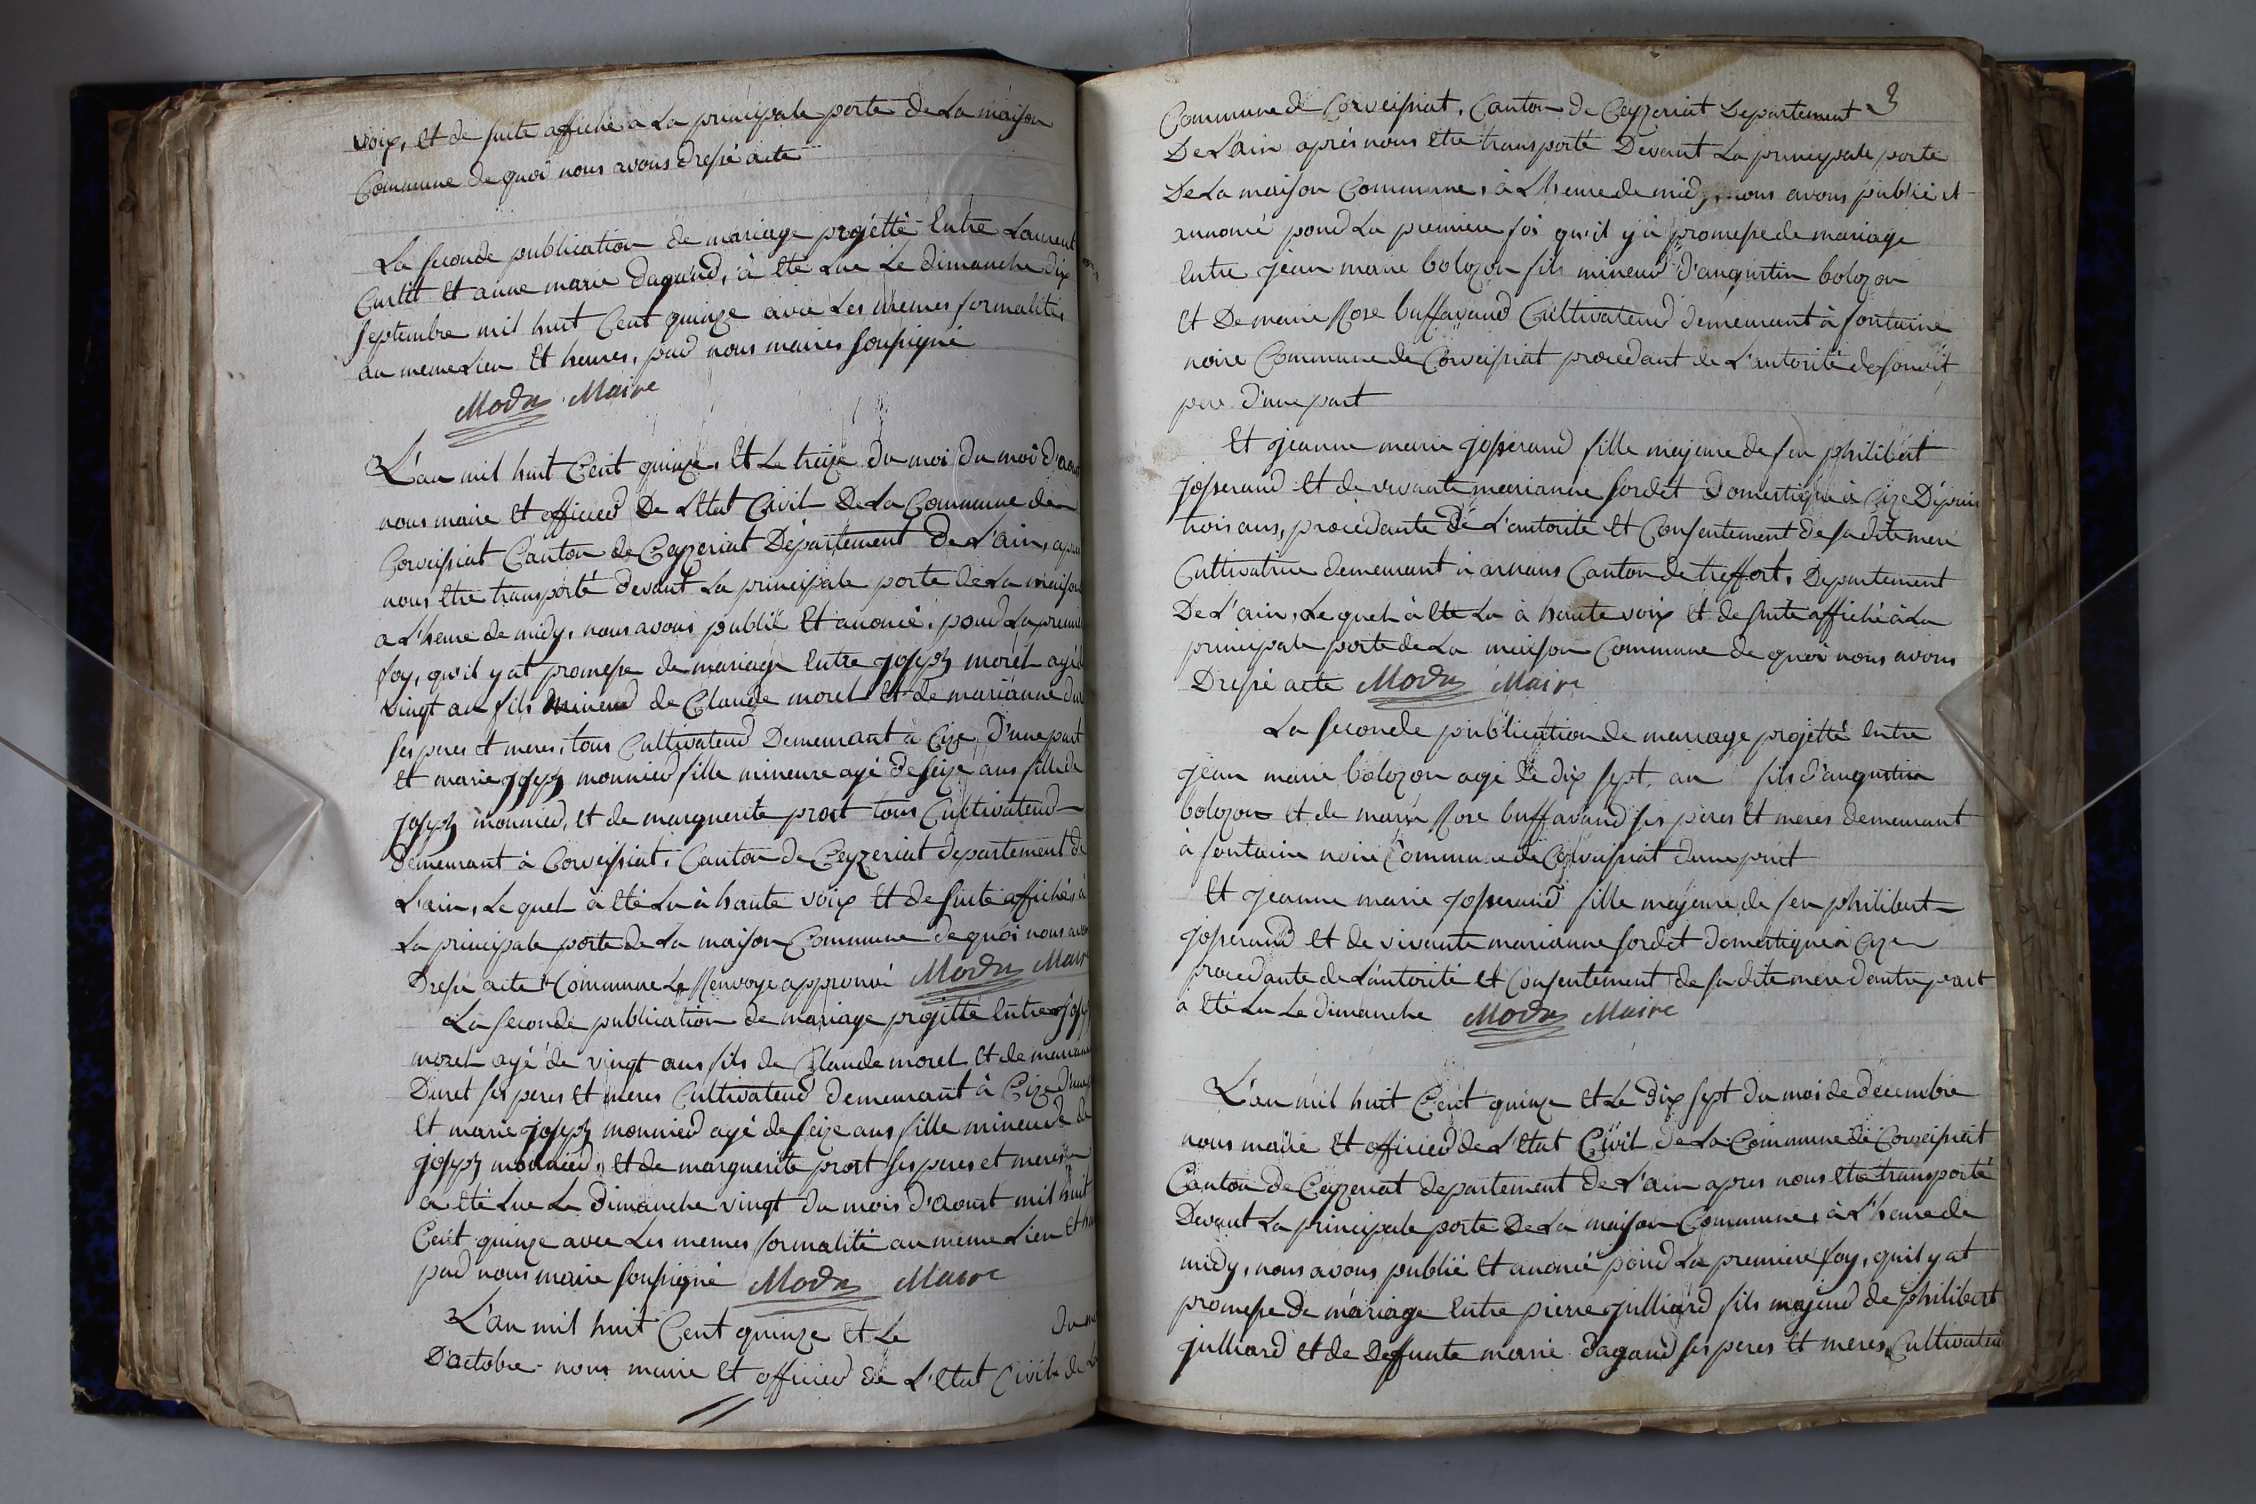 voix, et de suite affiché a la principale porte de la maison
Commune de quoi nous avons dressé acte
La seconde publication de mariage projétté Entre Laurent
Curtit et anne marie dagaud, à été lue Le dimanche dix
septembre mil huit Cent quinze avec Les mêmes formalités
au meme Lieu et heures, par nous maires soussigné
Modas Maire
L'an mil huit Cent quinze, et Le treize du moi du moi d'aout
nous maire et officier De L'Etat Civil De La Commune de
Corveissiat Canton de Ceyzeriat Département De L'ain, apres
nous etre transporté devant La principale porte de La maison
a L'heure de midy, nous avons publié et anoncé, pour La premiere
foy, qu'il y at promesse de mariage Entre joseph morel agé de
vingt an fils mineur de Claude morel et de marianne dur
ses peres et meres, tous Cultivateur Demeurant à Cize, D'une part
et marie joseph monnier fille mineure agé de seize ans fille de
joseph monnier, et de marguerite prost tous Cultivateur
demeurant à Corveissiat, Canton de Ceyzeriat departement de
L'ain, Lequel à été Lu à haute voix et de suite affiché, à
La principale porte de La maison Commune de quoi nous avon
Dressé acte & Commune Le Renvoye approuvé Modas Maire
La seconde publication de mariage projetté Entre josep
morel agé de vingt ans fils de Claude morel et de marianne
Duret ses peres et meres Cultivateur demeurant à Cize d'une p
et marie joseph monnier agé de seize ans fille mineure de
joseph monnier, et de marguerite prost ses peres et meres
a été Lue Le dimanche vingt du mois d'aoust mil huit
Cent quinze avec Les memes formalité au meme Lieu et heu
par nous maire soussigné Modas Maire
L'an mil huit Cent quinze et Le du moi
D'actobre nous maire et officier de L'état Civil de La
3
Commune de Corveissiat, Canton de Ceyzeriat Departement
De L'ain après nous etre transporté Devant La principale porte
De La maison Commune, à L'heure de midy, nous avons publié et
annoncé pour La premiere foi qu'il y à promesse de mariage
Entre jean marie bolozon fils mineur d'augustin bolozon
et De marie Rose buffavand Cultivateur demeurant à fontaine
noire Commune de Corveissiat procédant de L'autorité de son dit
pere d'une part
Et jeanne marie josserand fille majeure de feu philibert
josserand et de vivante marianne sordet domestique à Cize Dépuis
trois ans, procédante de L'autorité et Consentement de sa dite mere
Cultivatrice demeurant à arnans Canton de treffort, Departement
De L'ain, Lequel à été Lu à haute voix et de suite affiché à La
principale porte de La maison Commune de quoi nous avons
Dressé acte Modas Maire
La seconde publication de mariage projetté Entre
jean marie bolozon agé de dix sept an fils d'augustin
bolozon et de marie Rose buffavand ses peres et meres demeurant
à fontaine noire Commune de Corveissiat d'une part
Et jeanne marie josserand fille majeure de feu philibert
josserand et de vivante marianne sordet domestique à Cize
procedante de L'autorité et Consentement de sa dite mere d'autre part
a été Lu Le dimanche Modas Maire
L'an mil huit Cent quinze et Le dix sept du mois de decembre
nous maire et officier de L'Etat Civil de La Commune de Corveissiat
Canton de Ceyzeriat departement de L'ain apres nous etre transporté
Devant La principale porte De La maison Commune, à L'heure de
midy, nous avons publié et anoncé pour La premiere foy, qu'il y at
promesse de mariage Entre pierre julliard fils majeur de philibert
julliard et de deffunte marie dagaud ses peres et meres Cultivateur